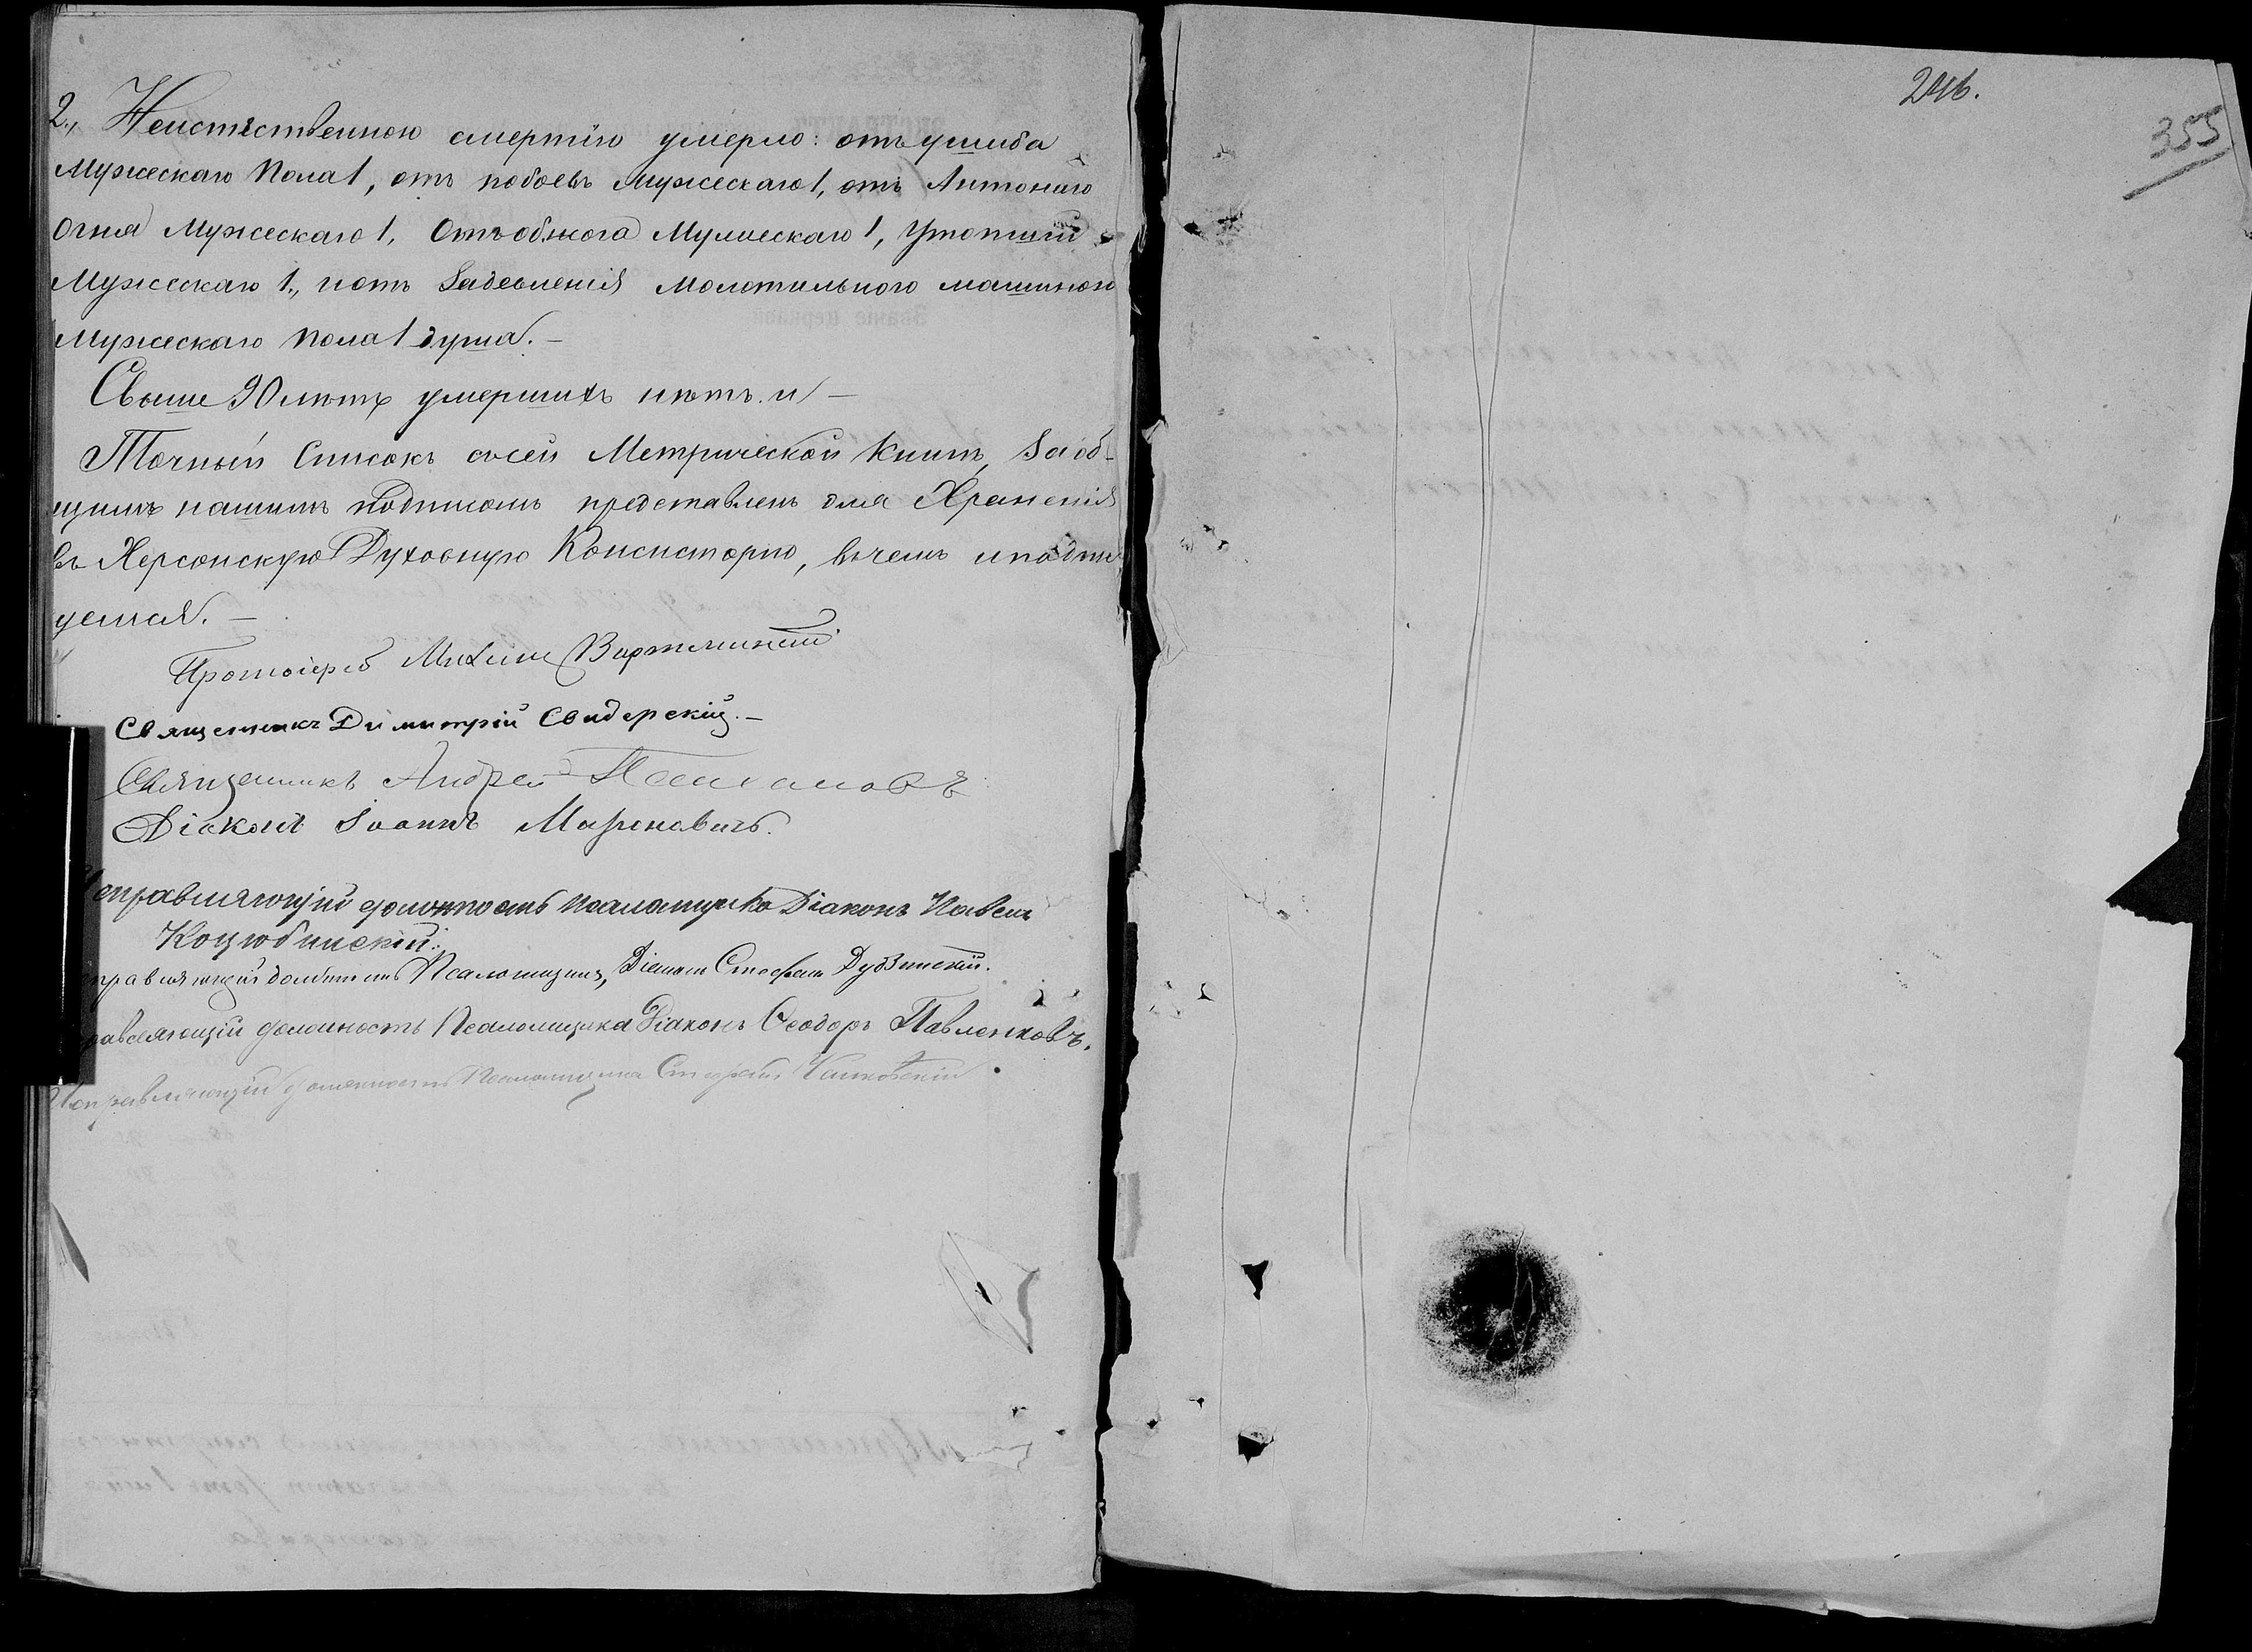 2., Неистественною смертію умерло: отъ ушиба
Мужескаго Пола 1, отъ побоевъ Мужескаго 1, отъ Антониго
Огня Мужескаго 1, Отъ обжога Мужескаго 1, Утопшій
Мужескаго 1., и отъ Задавленія Молотильного машиною
Мужескаго Пола 1 душа. —
Свыше 90 лѣтъ умершихъ нѣтъ. и —
Точный Списокъ съ сей Метрической Книги, За об-
щимъ нашимъ Подписомъ представленъ для Храненія
въ Херсонскую Духовную Консисторію, въ чемъ и подпи
уемся. —
Протоіерей Михаилъ
Священникъ Димитрій Свидерскій. —
Священникъ Андрей
Діаконъ Іоаннъ Мароновичъ.
Исправляющій должность псаломщика Діаконъ Павелъ
Коцюбинскій.
справляющій должность Псаломщика, Діаконъ Стефанъ Дубинскій.
правляющій должность Псаломщика Діаконъ Ѳеодоръ Павленковъ.
Исправляющій должность Псаломщика Стефанъ
246.
355